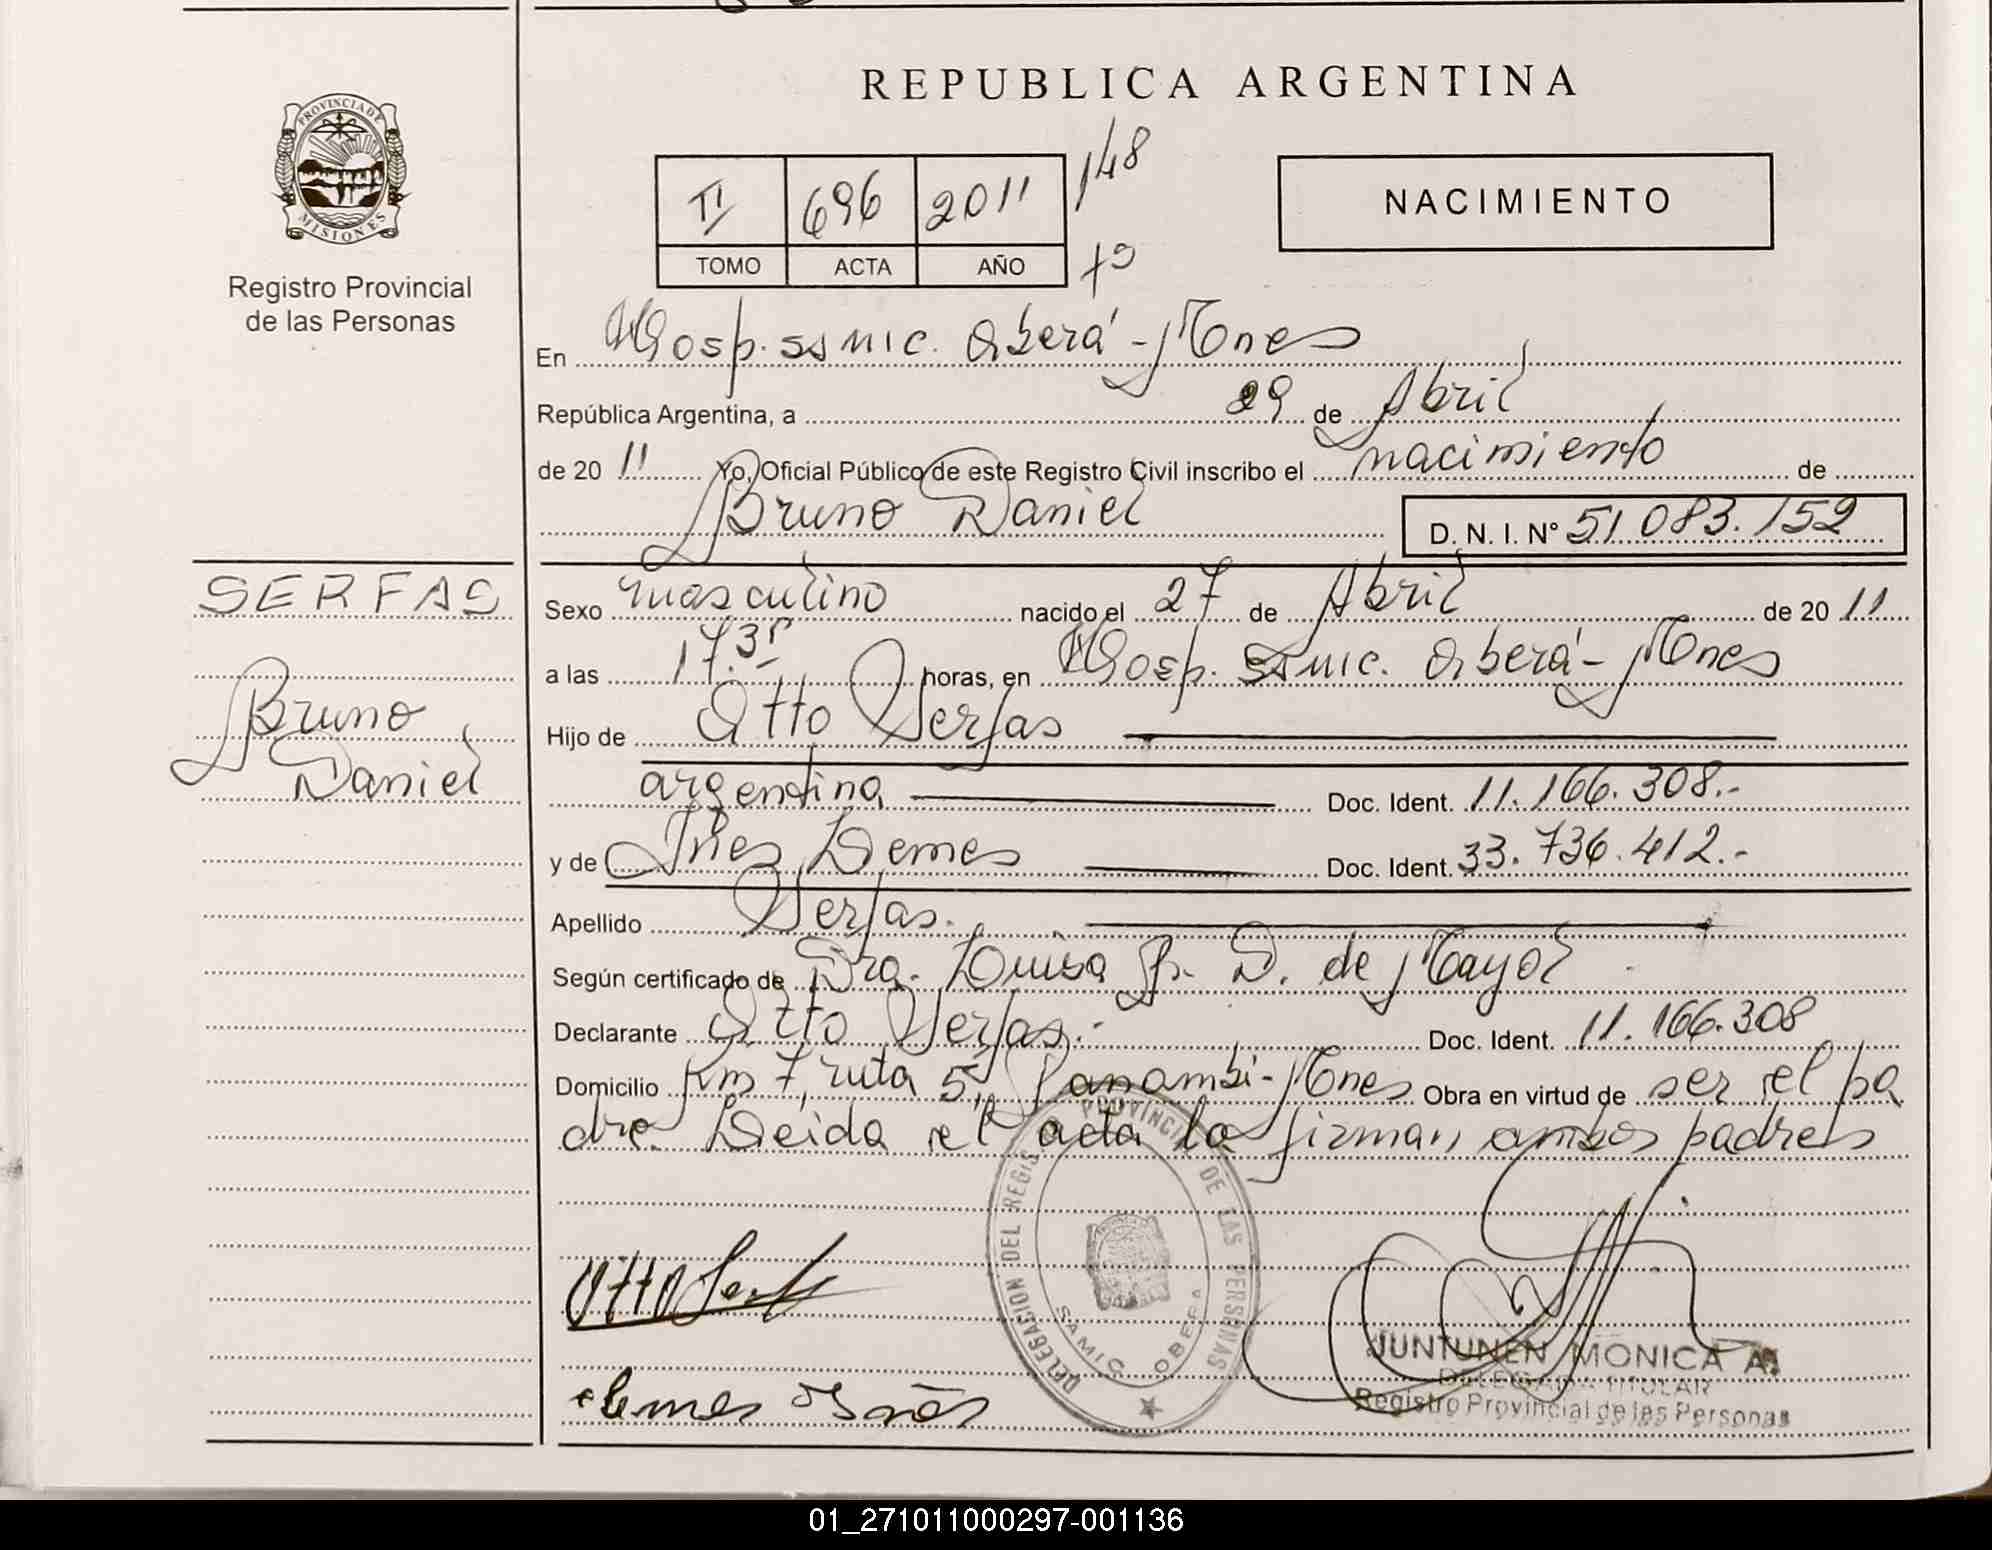 REPUBLICA ARGENTINA
PROVINCIA DE MISIONES
Registro Provincial
de las Personas
II 696 2011 148
TOMO ACTA AÑO
NACIMIENTO
En Hosp. ssmic. Oberá - Mnes
República Argentina, a 29 de Abril
de 2011 Yo, Oficial Público de este Registro Civil inscribo el nacimiento de
Bruno Daniel D. N. I. N° 51.083.152
SERFAS
Bruno
Daniel
Sexo masculino nacido el 27 de Abril de 2011
a las horas, en Hosp. ssmic. Oberá - Mnes
Hijo de Otto Serfas
argentina Doc. Ident. 11.166.308.-
y de Lemes Doc. Ident. 33.736.412.-
Apellido Serfas.
Según certificado de Dra. Luisa D. de Mayol
Declarante Otto Serfas.- Doc. Ident. 11.166.308
Domicilio Km 7, ruta 5, Panambi - Mnes Obra en virtud de ser el pa
dre. Leida el acta la firman ambos padres
DELEGACION DEL REGISTRO PROVINCIAL DE LAS PERSONAS
SAMIC OBERA
Otto
JUNTUNEN MONICA A.
DELEGADA TITULAR
Registro Provincial de las Personas
01_271011000297-001136